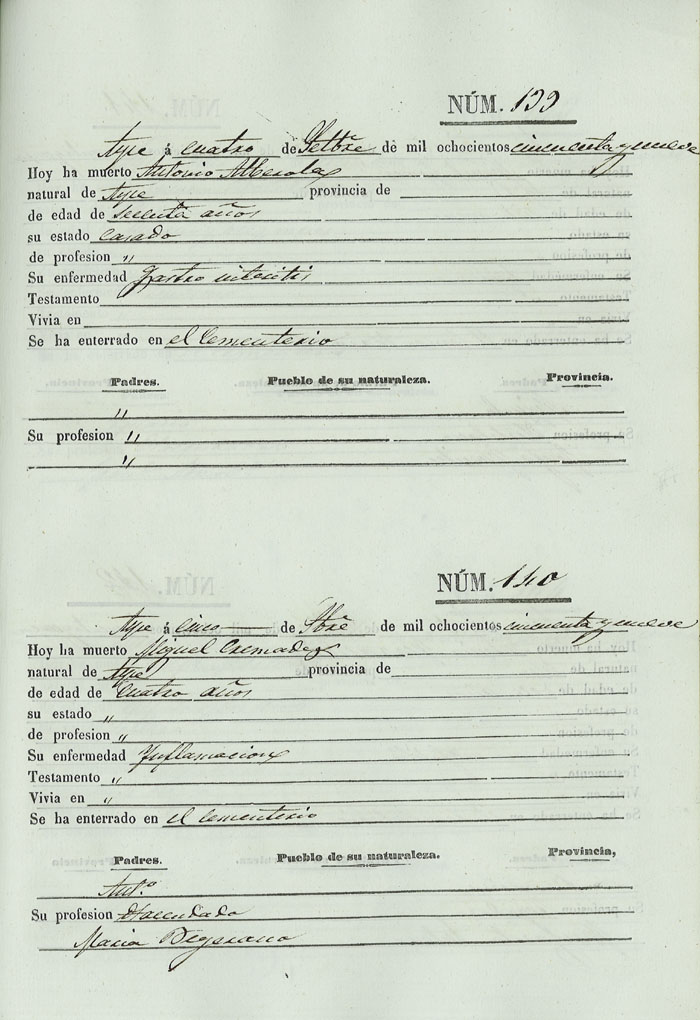 NÚM. 139
Aspe á cuatro de Settbre de mil ochocientos cincuenta y nueve
Hoy ha muerto Antonio Alberola
natural de Aspe provincia de
de edad de años
su estado casado
de profesion "
Su enfermedad gastro interitis
Testamento
Vivia en
Se ha enterrado en el Cementerio
Padres. Pueblo de su naturaleza. Provincia.
"
Su profesion "
"
NÚM. 140
Aspe á cinco de 7bre de mil ochocientos cincuenta y nueve
Hoy ha muerto Miguel Cremades
natural de Aspe provincia de
de edad de Cuatro años
su estado "
de profesion "
Su enfermedad Inflamacion
Testamento "
Vivia en "
Se ha enterrado en el Cementerio
Padres. Pueblo de su naturaleza. Provincia,
Antº
Su profesion Hacendado
Maria